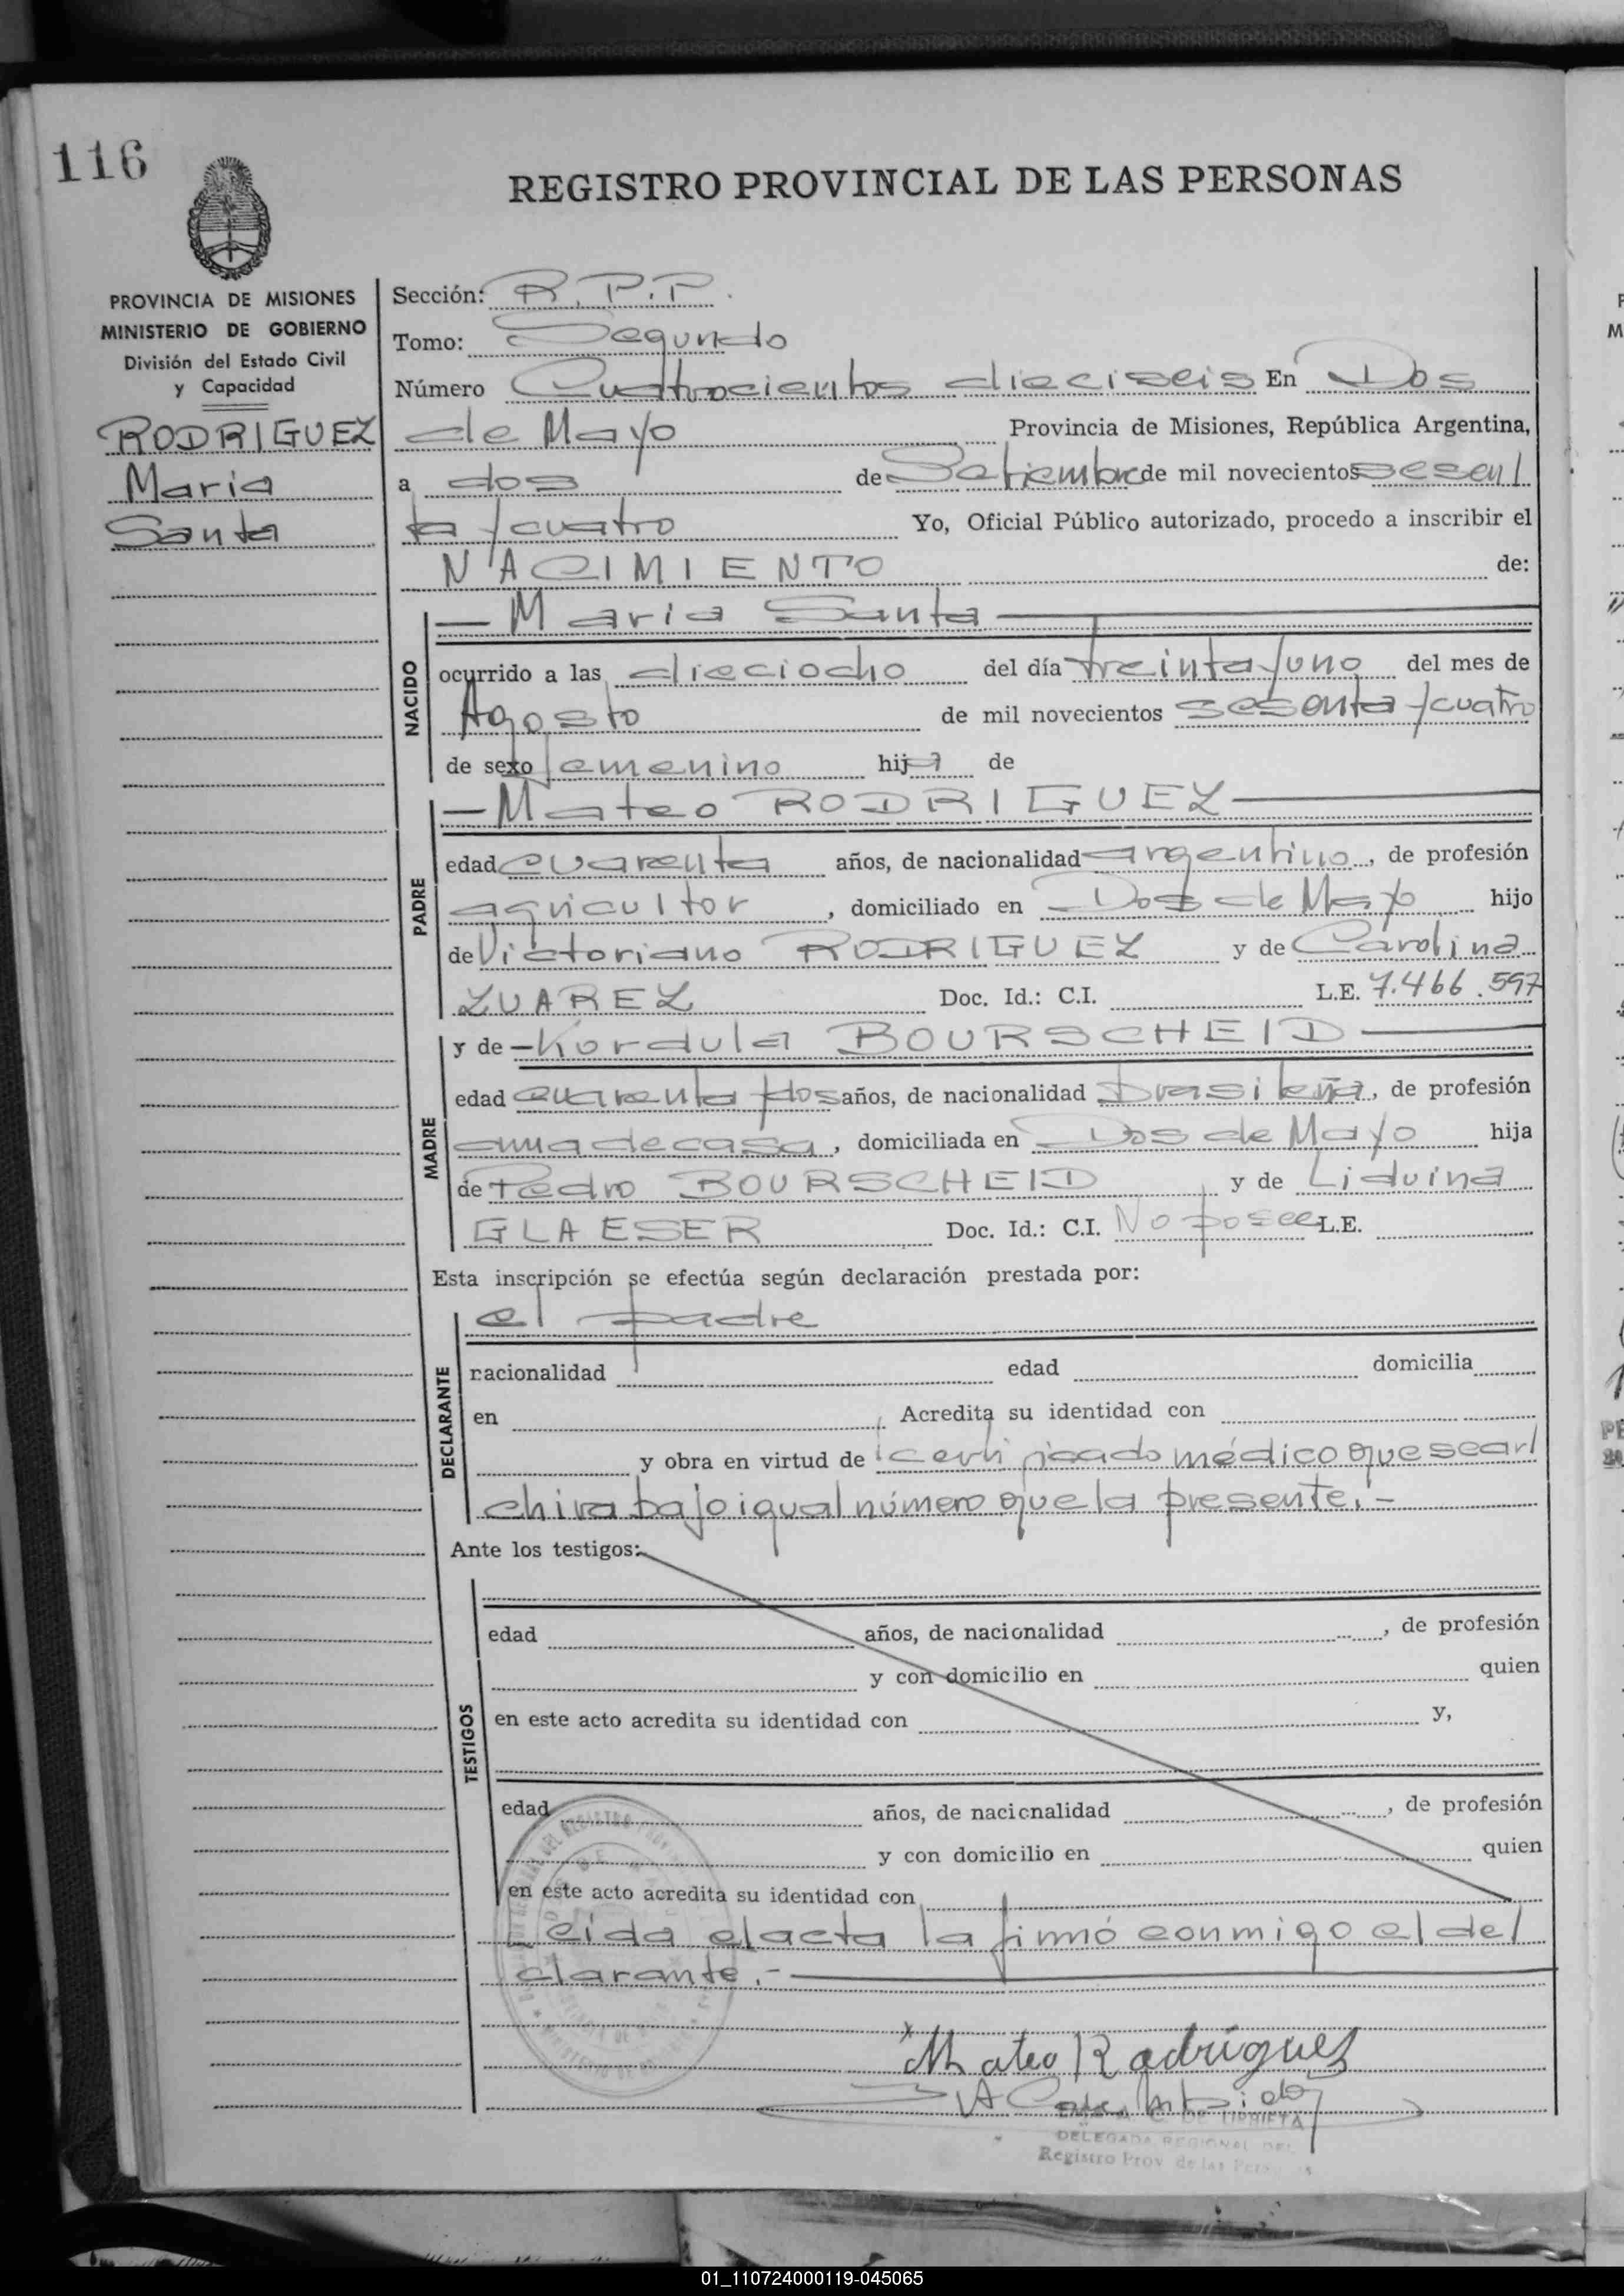 116
REGISTRO PROVINCIAL DE LAS PERSONAS
PROVINCIA DE MISIONES
MINISTERIO DE GOBIERNO
División del Estado Civil
y Capacidad
RODRIGUEZ
Maria
Santa
Sección: R.P.P.
Tomo: Segundo
Número Cuatrocientos dieciseis En Dos
de Mayo Provincia de Misiones, República Argentina,
a dos de Setiembre de mil novecientos sesen/
ta y cuatro Yo, Oficial Público autorizado, procedo a inscribir el
NACIMIENTO de:
NACIDO
— Maria Santa —
ocurrido a las dieciocho del día treinta y uno del mes de
Agosto de mil novecientos sesenta y cuatro
de sexo femenino hija de
PADRE
— Mateo RODRIGUEZ —
edad cuarenta años, de nacionalidad argentino, de profesión
agricultor, domiciliado en Dos de Mayo hijo
de Victoriano RODRIGUEZ y de Carolina
ZUAREZ Doc. Id.: C.I. L.E. 7.466.597
MADRE
y de — Kordula BOURSCHEID —
edad cuarenta y dos años, de nacionalidad brasileña, de profesión
ama de casa, domiciliada en Dos de Mayo hija
de Pedro BOURSCHEID y de Liduina
GLAESER Doc. Id.: C.I. No posee L.E.
Esta inscripción se efectúa según declaración prestada por:
DECLARANTE
el padre
nacionalidad edad domicilia
en , Acredita su identidad con
y obra en virtud de certificado médico que se ar/
chiva bajo igual número que la presente.-
Ante los testigos:
TESTIGOS
edad años, de nacionalidad , de profesión
y con domicilio en quien
en este acto acredita su identidad con y,
edad años, de nacionalidad , de profesión
y con domicilio en quien
en este acto acredita su identidad con
Leida el acta la firmó conmigo el de/
clarante.-
Mateo Rodriguez
DE URRIETA
DELEGADA REGIONAL DEL
Registro Prov. de las Personas
01_110724000119-045065